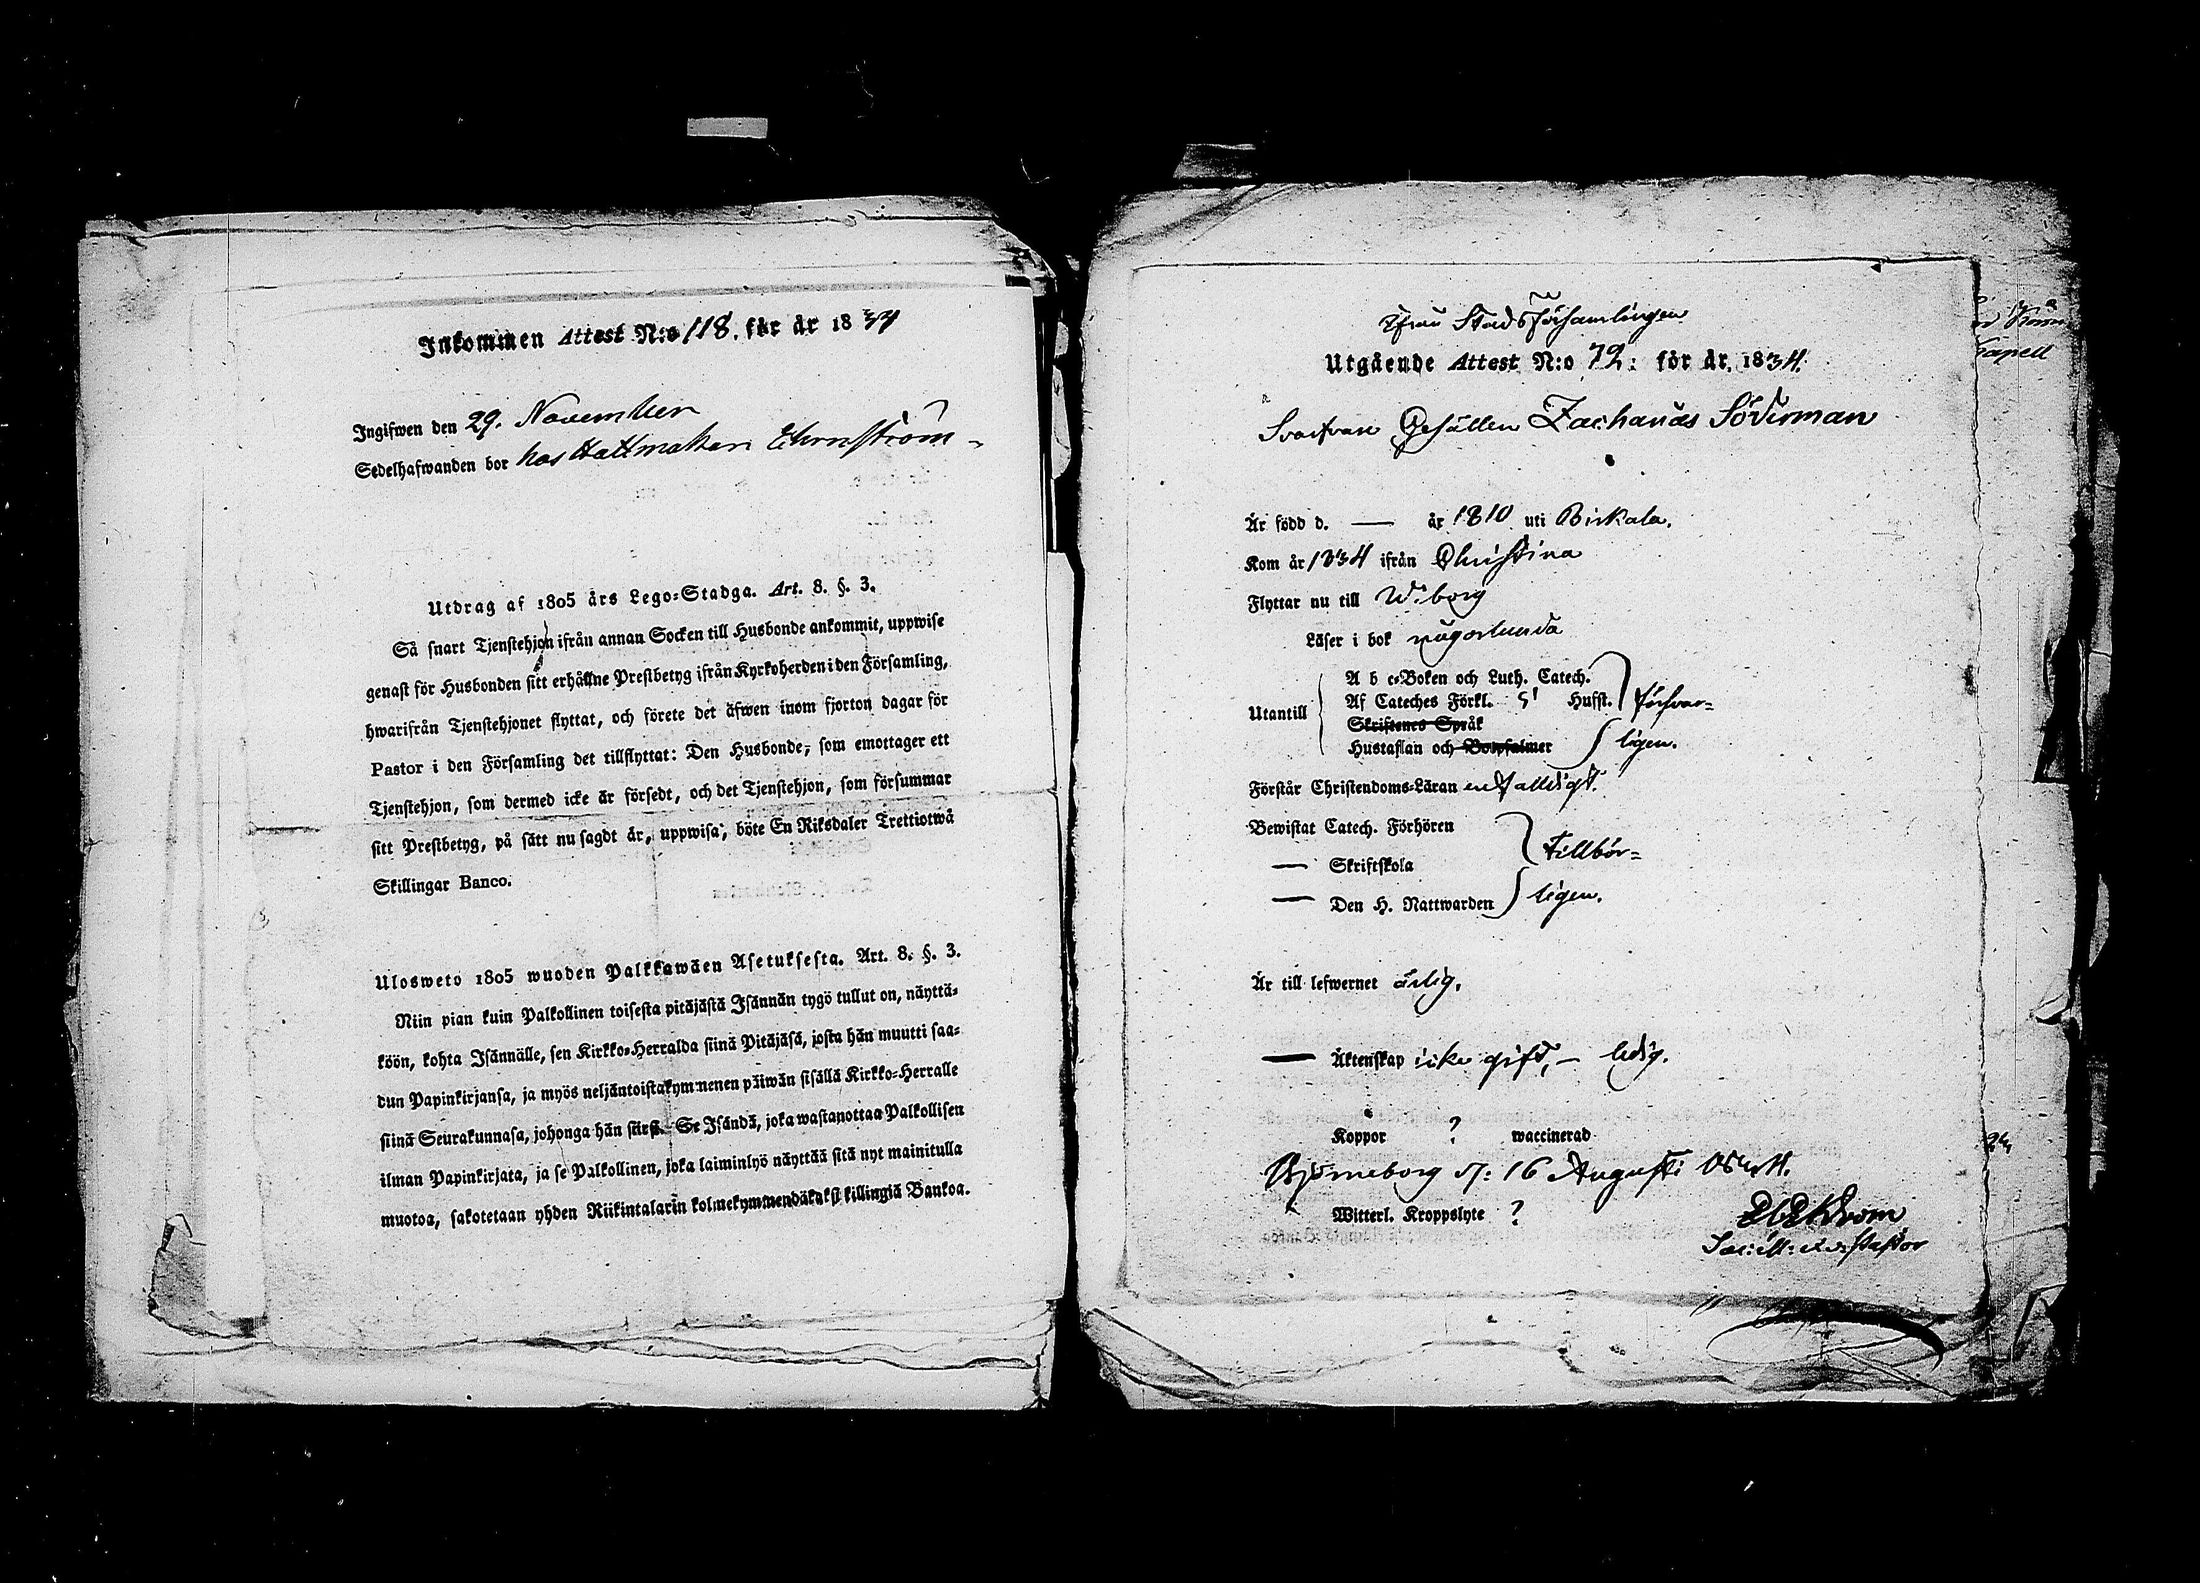 Inkommen Attest N:o 118. får år 1834
Ingifwen den 29. November
Sedelhafwanden bor hos Hattmakari Ehrnström
Utdrag af 1805 års Lego=Stadga. Art. 8. §. 3.
Så snart Tjenstehjon ifrån annan Socken till Husbonde ankommit, uppwise
genast för Husbonden sitt erhållne Prestbetyg ifrån Kyrkoherden i den Församling,
hwarifrån Tjenstehjonet flyttat, och förete det äfwen inom fjorton dagar för
Pastor i den Församling det tillflyttat: Den Husbonde, som emottager ett
Tjenstehjon, som dermed icke är försedt, och det Tjenstehjon, som försummar
sitt Prestbetyg, på sätt nu sagdt är, uppwisa, böte En Riksdaler Trettiotwå
Skillingar Banco.
Ulosweto 1805 wuoden Palkkawäen Asetuksesta. Art. 8. §. 3.
Niin pian kuin Palkollinen toisesta pitäjästä Isännän tygö tullut on, näyttä=
köön, kohta Isännälle, sen Kirkko=Herralda siinä Pitäjäsä, josta hän muutti saa=
dun Papinkirjansa, ja myös neljäntoistakymmenen päiwän sisällä Kirkko=Herralle
siinä Seurakunnasa, johonga hän siirsi. Se Isändä, joka wastanottaa Palkollisen
ilman Papinkirjata, ja se Palkollinen, joka laiminlyö näyttää sitä nyt mainitulla
muotoa, sakotetaan yhden Riikintalarin kolmekymmendäkaksi killingiä Bankoa.
ifrån Stadsförsamlingen
Utgående Attest N:o 72: för år. 1834.
Svarfvare Gesällen Zacharias Söderman
Är född d. — år 1810 uti Birkala.
Kom år 1834 ifrån Christina
Flyttar nu till Wiborg
Läser i bok någorlunda
A b c=Boken och Luth. Catech.
Utantill Af Cateches Förkl. 5' Hufst. försvar=
Skriftenes Språk
Hustaflan och Botpsalmer ligen.
Förstår Christendoms=Läran enfalldigt.
Bewistat Catech. Förhören
— Skriftskola tillbör=
— Den H. Nattwarden ligen.
Är till lefwernet ärlig.
— Äktenskap icke gift, – ledig.
Koppor ? waccinerad
Björneborg d: 16 Augusti 1834.
Witterl. Kroppslyte ?